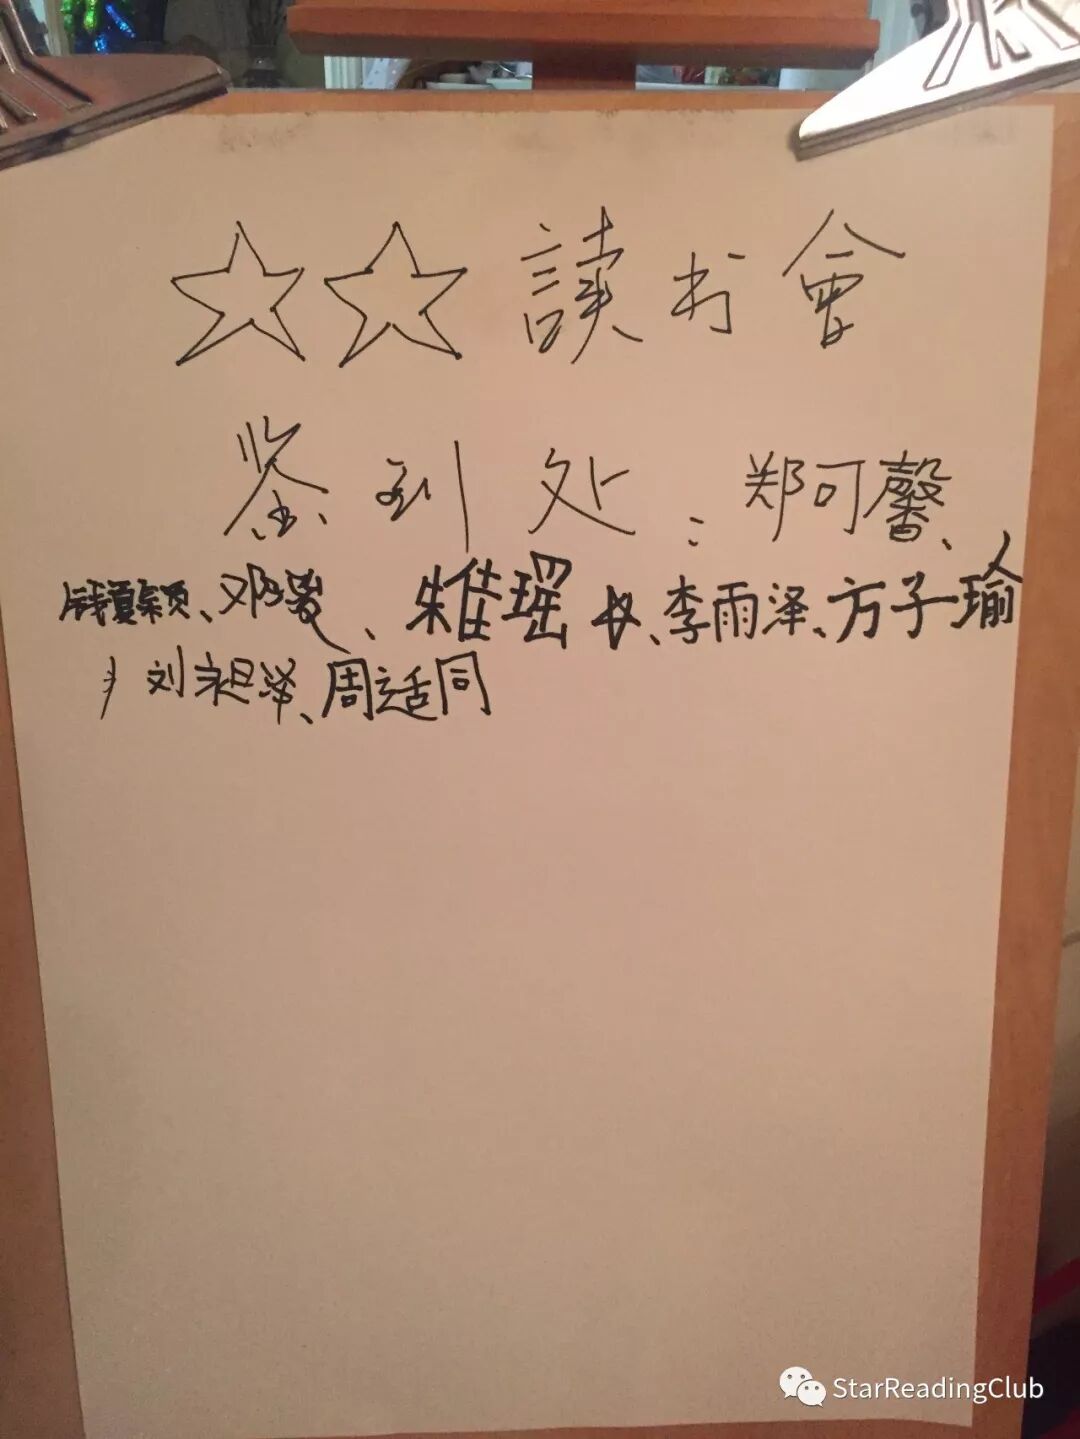 ☆☆ 讀书會
鉴到处：郑可馨、
钱夏颖、邓 、朱佳瑶、李雨泽、方子瑜
刘昶泽、周适同
StarReadingClub